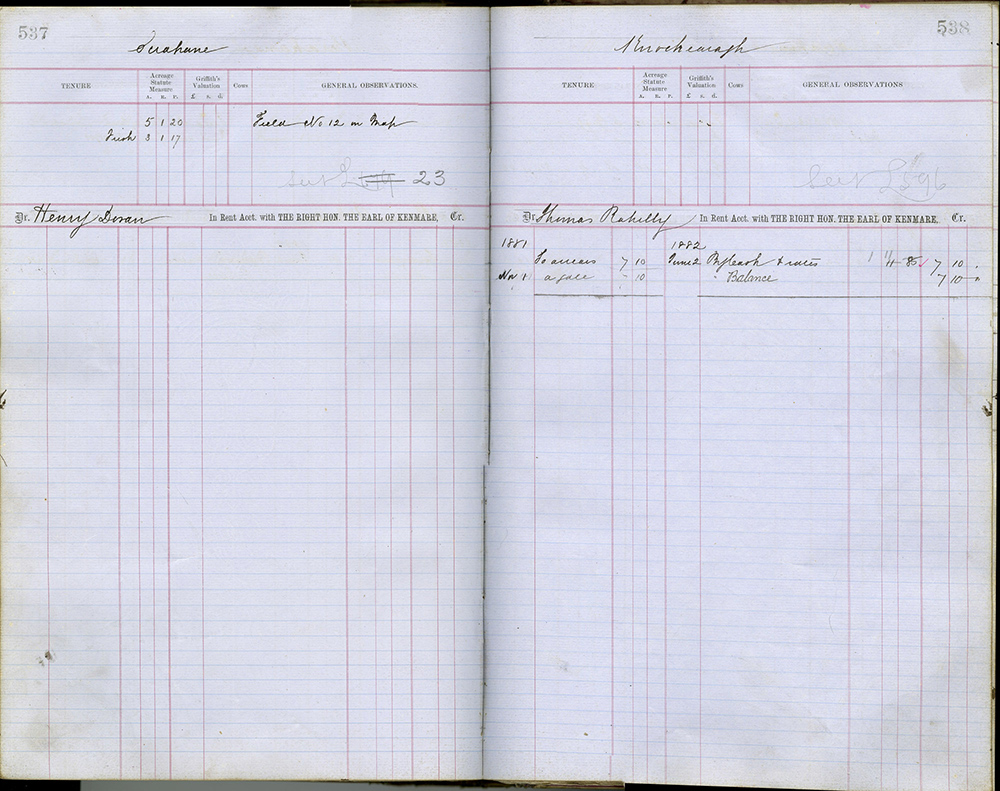 537
TENURE Acreage Statute Measure A. R. P. Griffith's Valuation £ s. d. Cows GENERAL OBSERVATIONS.
5 1 20 Field No 12 on Map
Irish 3 1 17
23
Dr. Henry Doran In Rent Acct. with THE RIGHT HON. THE EARL OF KENMARE, Cr.
538
TENURE Acreage Statute Measure A. R. P. Griffith's Valuation £ s. d. Cows GENERAL OBSERVATIONS
Dr Thomas Rahilly In Rent Acct. with THE RIGHT HON. THE EARL OF KENMARE, Cr.
1881 1882
To arrears 7 10 June 2 By Cash & rates 7 10
Nov 1 a gale 7 10 " Balance 7 10